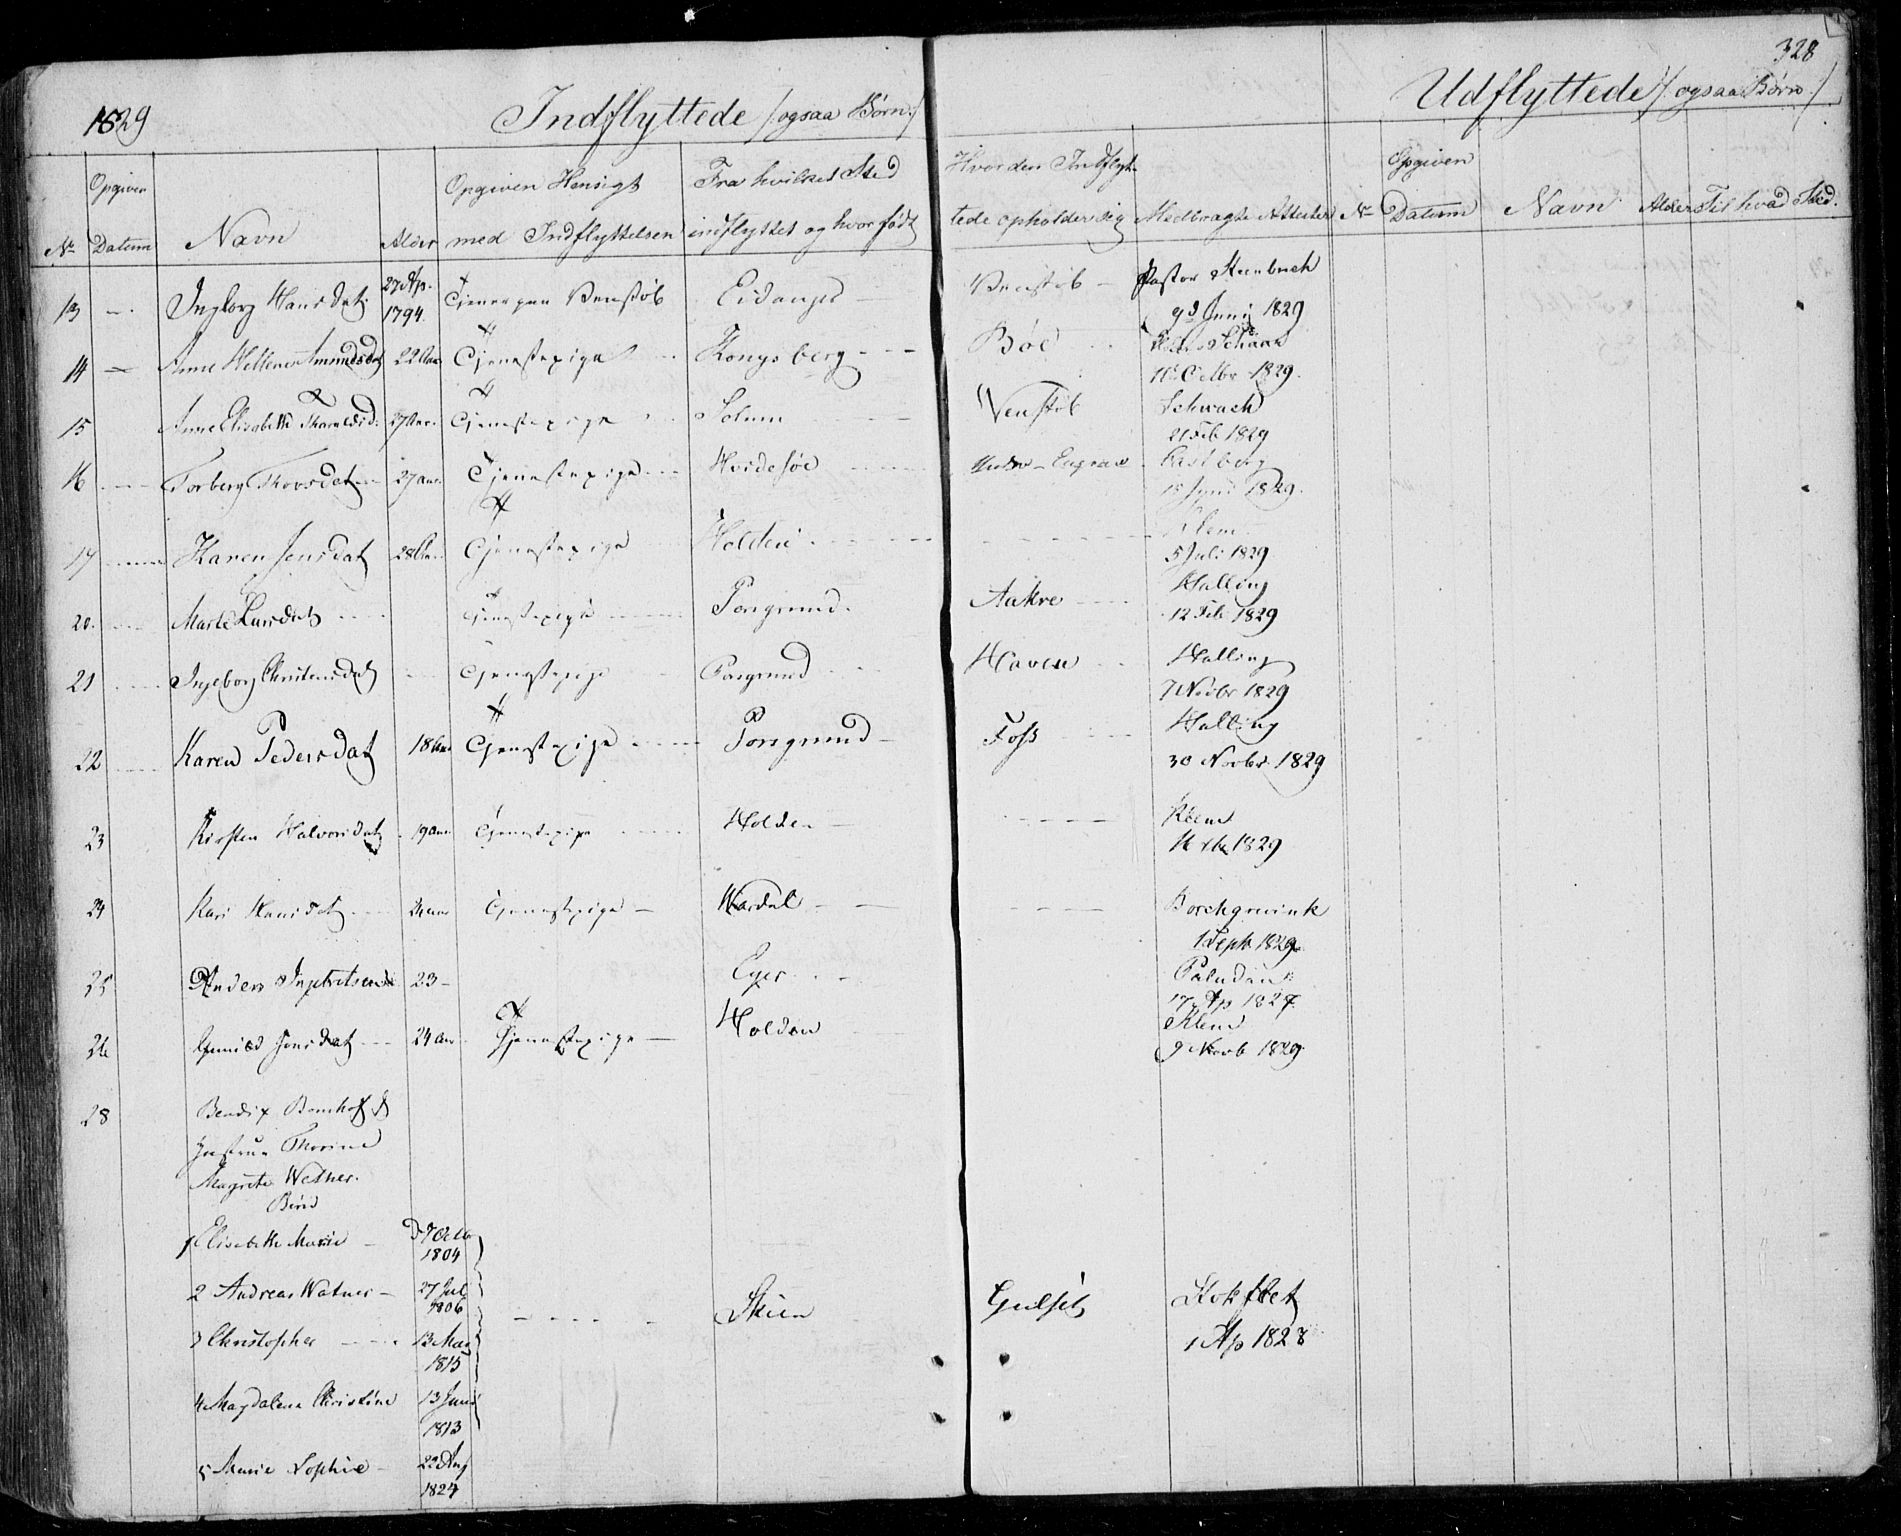 328
1829 Indflyttede /: ogsaa Børn :/ Udflyttede /: ogsaa Børn :/
No Opgiven Datum Navn Alder Opgiven Hensigt med Indflyttelsen Fra hvilket Sted indflyttet og hvor født Hvor den Indflyttede opholder sig Medbragte Attester No Opgiven Datum Navn Alder Til hvad Sted.
13 Ingborg Hansdat. 27 Ap. 1794. Tjener paa Venstøb Eidanger Venstøb Pastor Steenbuch
9d Junij 1829
14 Anne Hellene Amundsdat 22 Aar Tjenestepige Kongsberg Bøe
11 Octbr 1829.
15 Anne Elisabeth Tharaldsd. 27 Aar. Tjenestepige Solum Venstøb Schwach
21 Feb 1829
16 Torberg Thovsdat 27 aar. Tjenestepige Hvidesøe Castberg
1829.
17 Karen Jensdat 28 Aar. Tjenestepige Holden Klem
5 Juli 1829
20. Marte Larsdat Tjenestepige Porsgrund. Aakre Halling
12 Feb 1829
21 Ingeborg Christensdat Tjenestepige Porsgrund Haven Halling
7 Novbr 1829
22 Karen Pedersdat 18 Aar Tjenestepige Porsgrund Foss Halling
30 Novbr 1829
23 Kirsten Halvorsdat 19 aar Tjenestepige Holden Klem
1829
24 Kari Hansdat aar Tjenestepige Vardal Borchgrevink
1 Septr 1829
25 Anders 23 Eger Paludan
17 Ap 1827.
26 Gunild Jensdat 24 aar Tjenestepige Holden Klem
9 Novb 1829
28 Bendix Bomhoff
Hustrue Thorine
Magrete Wetner.
Børn
1 Elisabeth Marie D. 7 Octb 1804
2 Andreas Watner 27 Jul 1806 Skien Gulset Stokflet
1 Ap 1828
3 Christopher 13 Mai 1815
4 Magdalena Christine 13 Juni 1813
5 Marie Sophie 22 Aug 1824